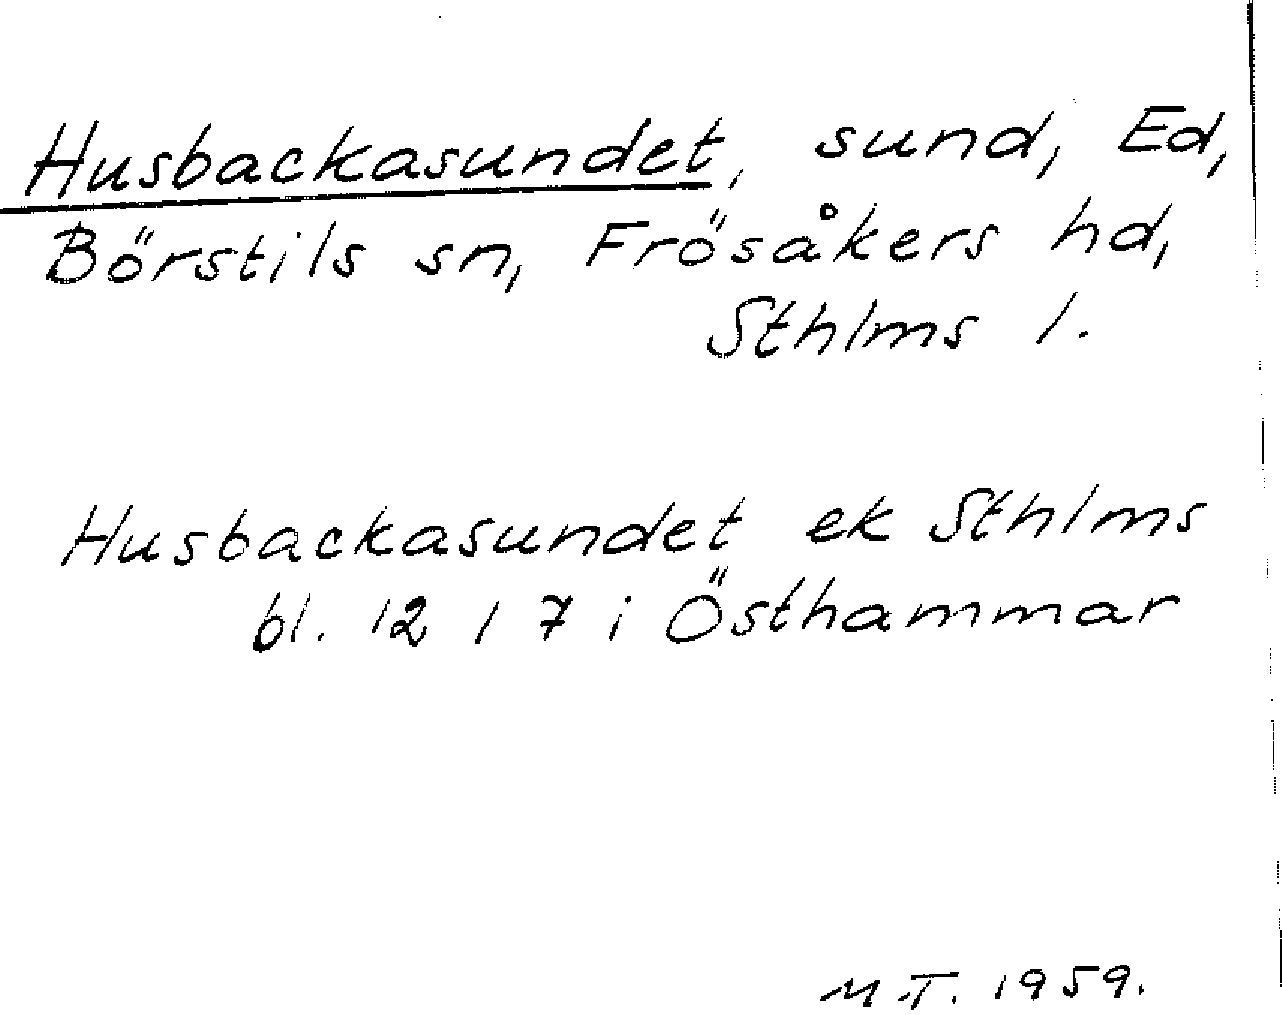 Husbackasundet, sund, Ed,
Börstils sn, Frösåkers hd,
Sthlms l.
Husbackasundet ek Sthlms
bl. 12 1 7 i Östhammar
M.T. 1959.